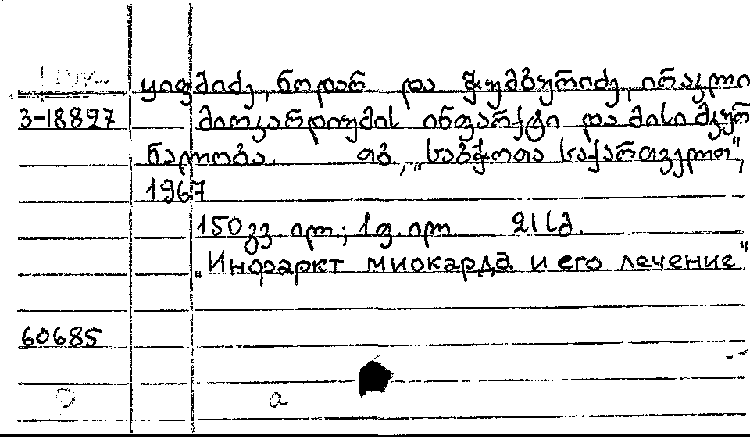 ყიფშიძე, ნოდარ და ჭუმბურიძე, ირაკლი
3-18897 მიოკარდიუმის ინფარქტი და მისი მკურ
ნალობა. თბ, „საბჭოთა საქართველო",
1967
150 გვ. ილ.; 1 ფ. ილ 21 სმ.
„Инфаркт миокарда и его лечение"
60685
a